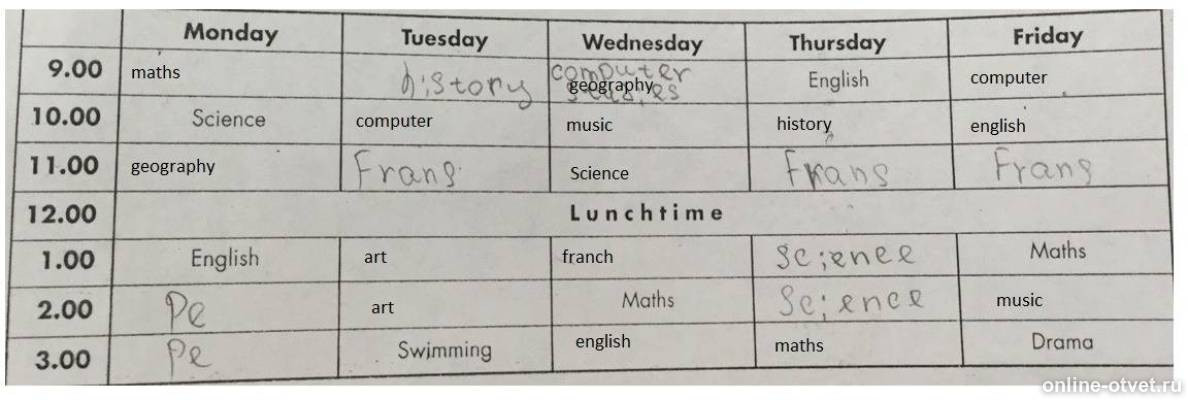 Monday Tuesday Wednesday Thursday Friday
9.00 maths history computer studies geography English computer
10.00 Science computer music history english
11.00 geography Frans Science Frans Frans
12.00 Lunchtime
1.00 English art franch Science Maths
2.00 Pe art Maths Science music
3.00 Pe Swimming english maths Drama
online-otvet.ru